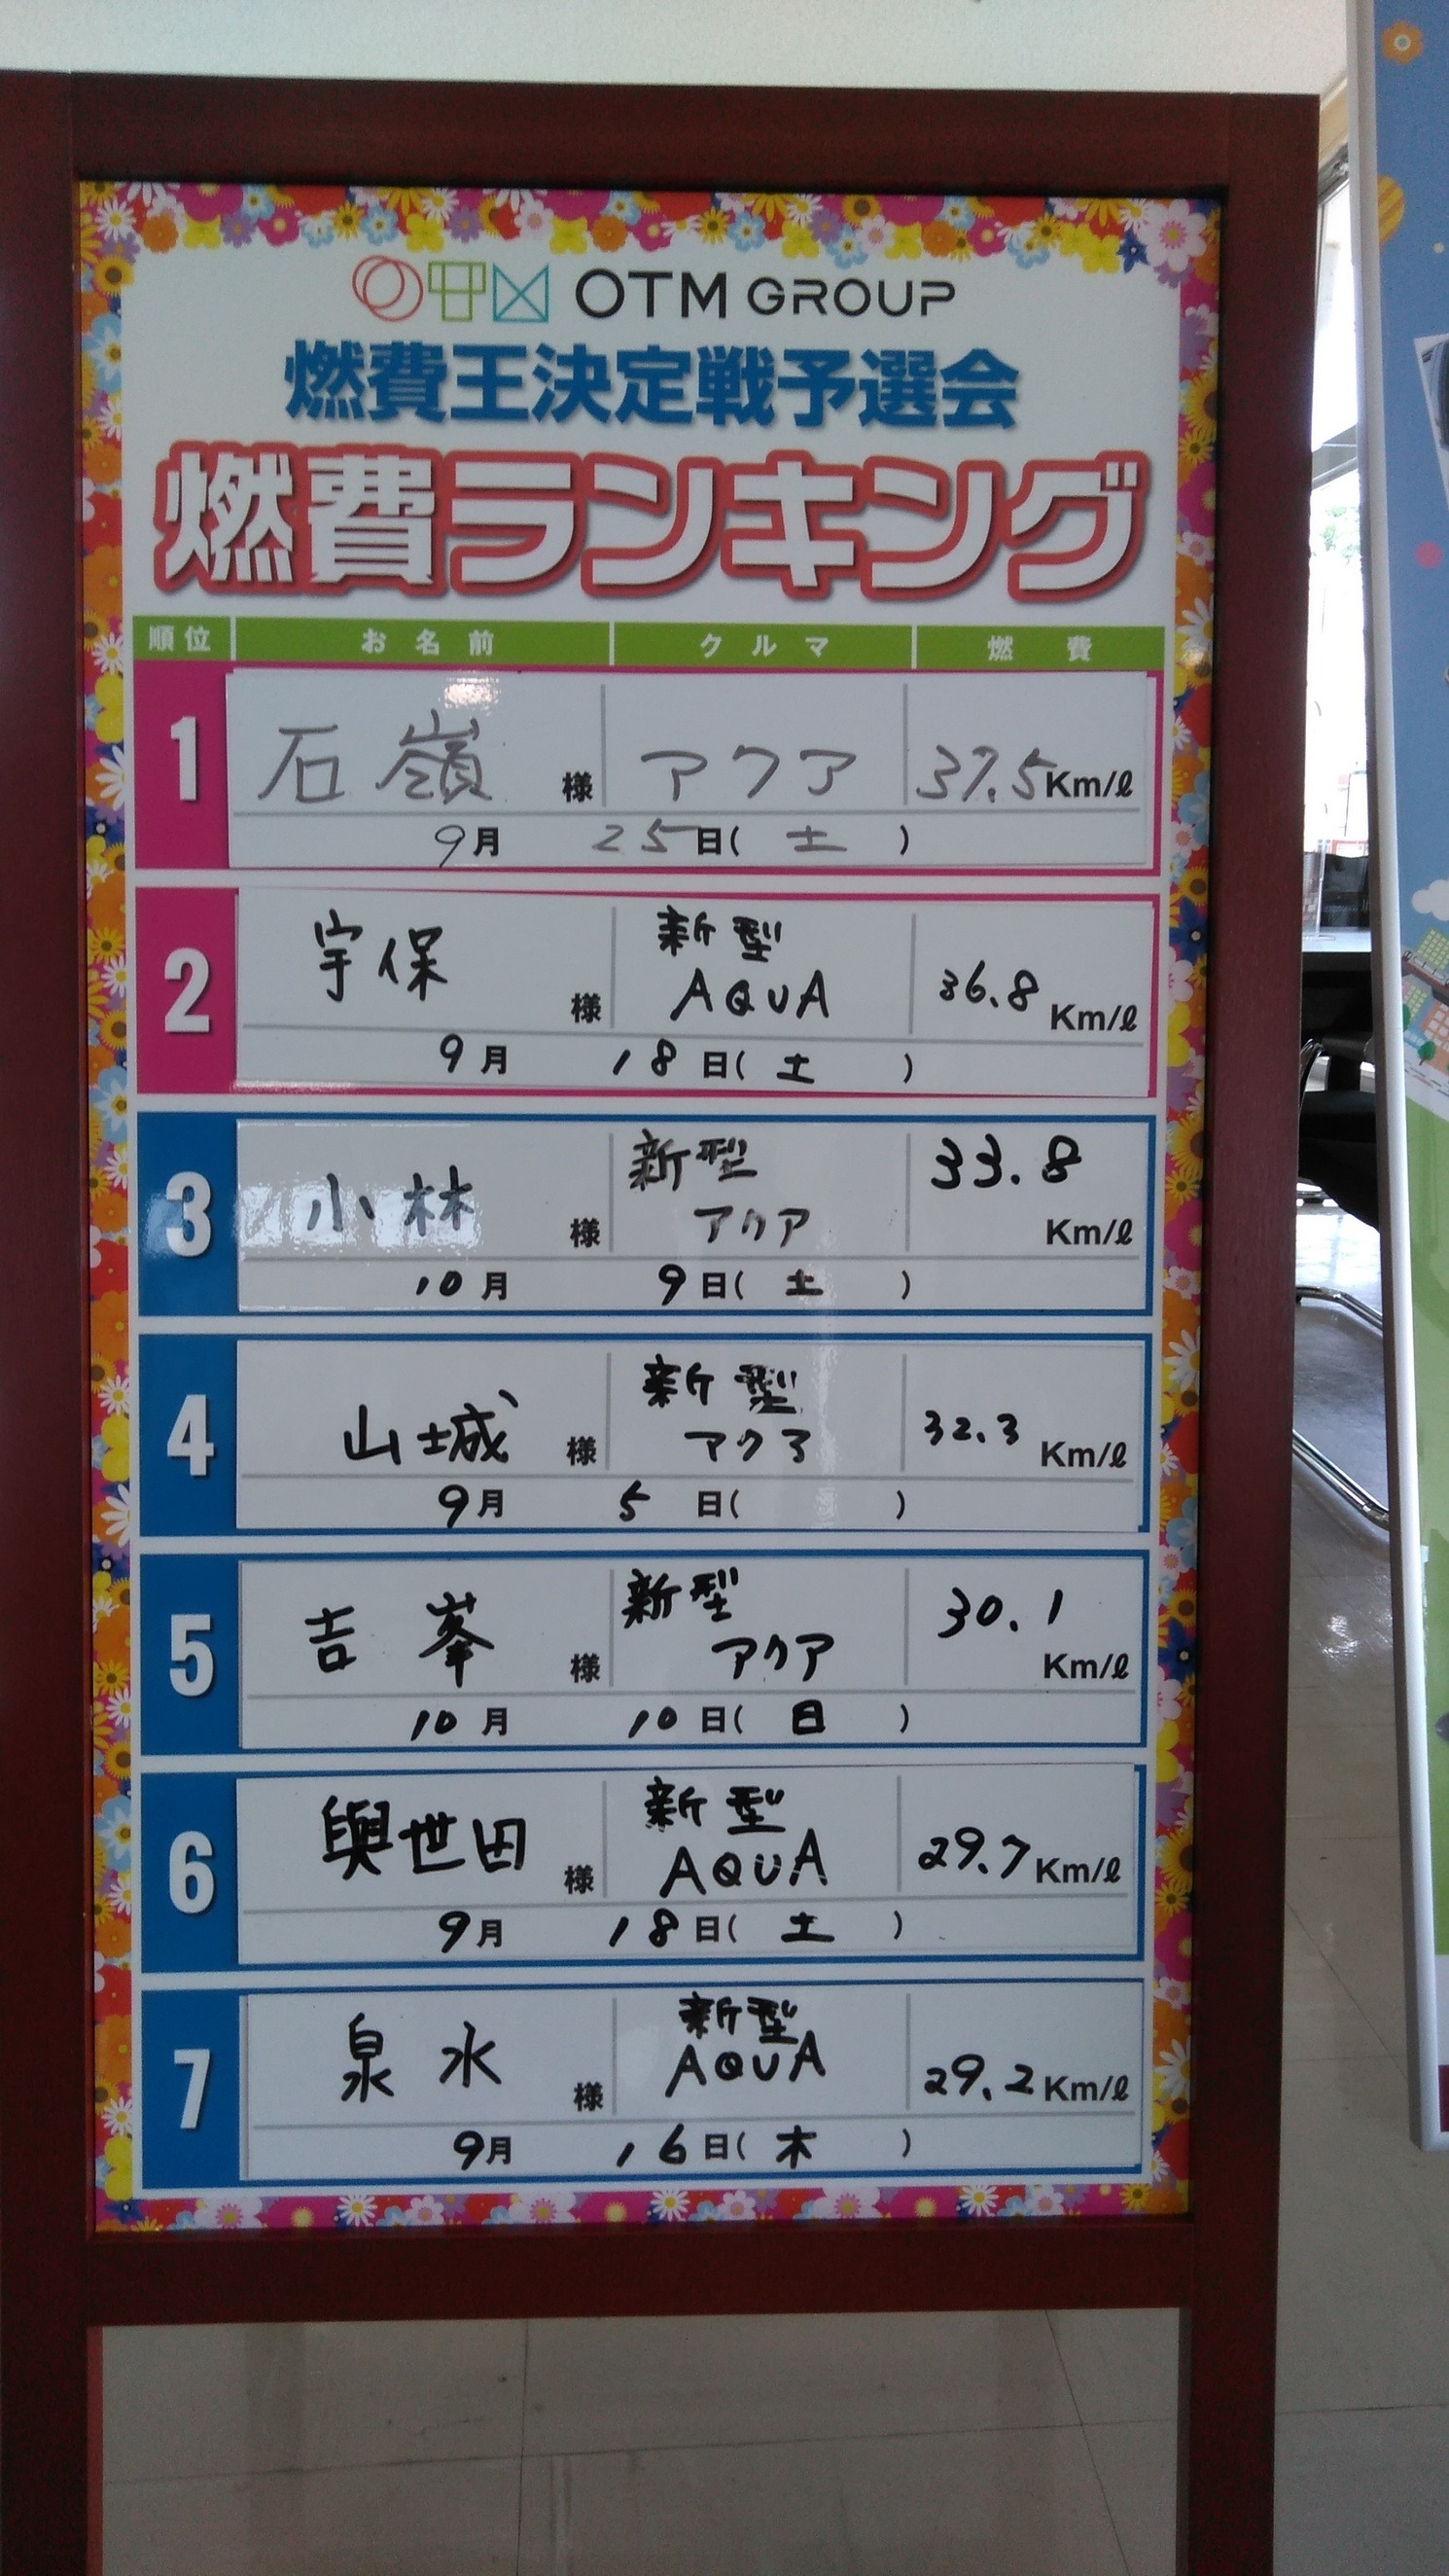 OTM GROUP
燃費王決定戦予選会
燃費ランキング
順位 お名前 クルマ 燃費
1 石嶺 様 アクア 37.5 Km/ℓ
9月 25日( 土 )
2 宇保 様 新型 AQUA 36.8 Km/ℓ
9月 18日( 土 )
3 小林 様 新型 アクア 33.8 Km/ℓ
10月 9日( 土 )
4 山城 様 新型 アクア 32.3 Km/ℓ
9月 5日( )
5 吉峯 様 新型 アクア 30.1 Km/ℓ
10月 10日( 日 )
6 與世田 様 新型 AQUA 29.7 Km/ℓ
9月 18日( 土 )
7 泉水 様 新型 AQUA 29.2 Km/ℓ
9月 16日( 木 )